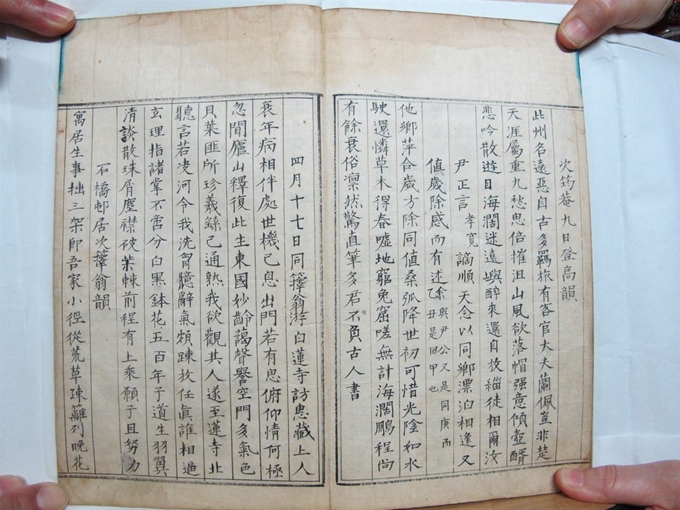 次筠菴九日登高韻
此州名遠惡自古多羈旅有客官大夫蘭佩豈非楚
天涯屬重九愁思倍摧沮山風欲落帽強意傾壺醑
悲吟散遊目海濶迷遠嶼醉來還自放緇徒相爾汝
尹正言孝寬謫順天念以同鄉漂泊相逢又
値歲除感而有述余與尹公又是同庚而
乙丑是回甲也
他鄕萍合歲方除同値桑弧降世初可惜光陰如水
駛還憐草木得春噓地窮兎窟嗟無計海濶鵬程尙
有餘衰俗凜然驚直筆多君不負古人書
四月十七日同籜翁游白蓮寺訪惠藏上人
衰年病相伴處世機已息出門若有思俯仰情何極
忽聞廬山釋復此生東國妙齡藹聲譽空門多氣色
貝葉匪所珍羲繇已通熟我欲觀其人遂至蓮寺北
聽言若凌河令我洗胷臆辭氣頗踈放任眞誰相逼
玄理指諸掌不啻分白黑鉢花五百年子道生羽翼
淸談散珠屑塵襟破柴棘前程有上乘願子且努力
石橋邨居次籜翁韻
寓居生事拙三架卽吾家小徑從荒草踈籬列晩花